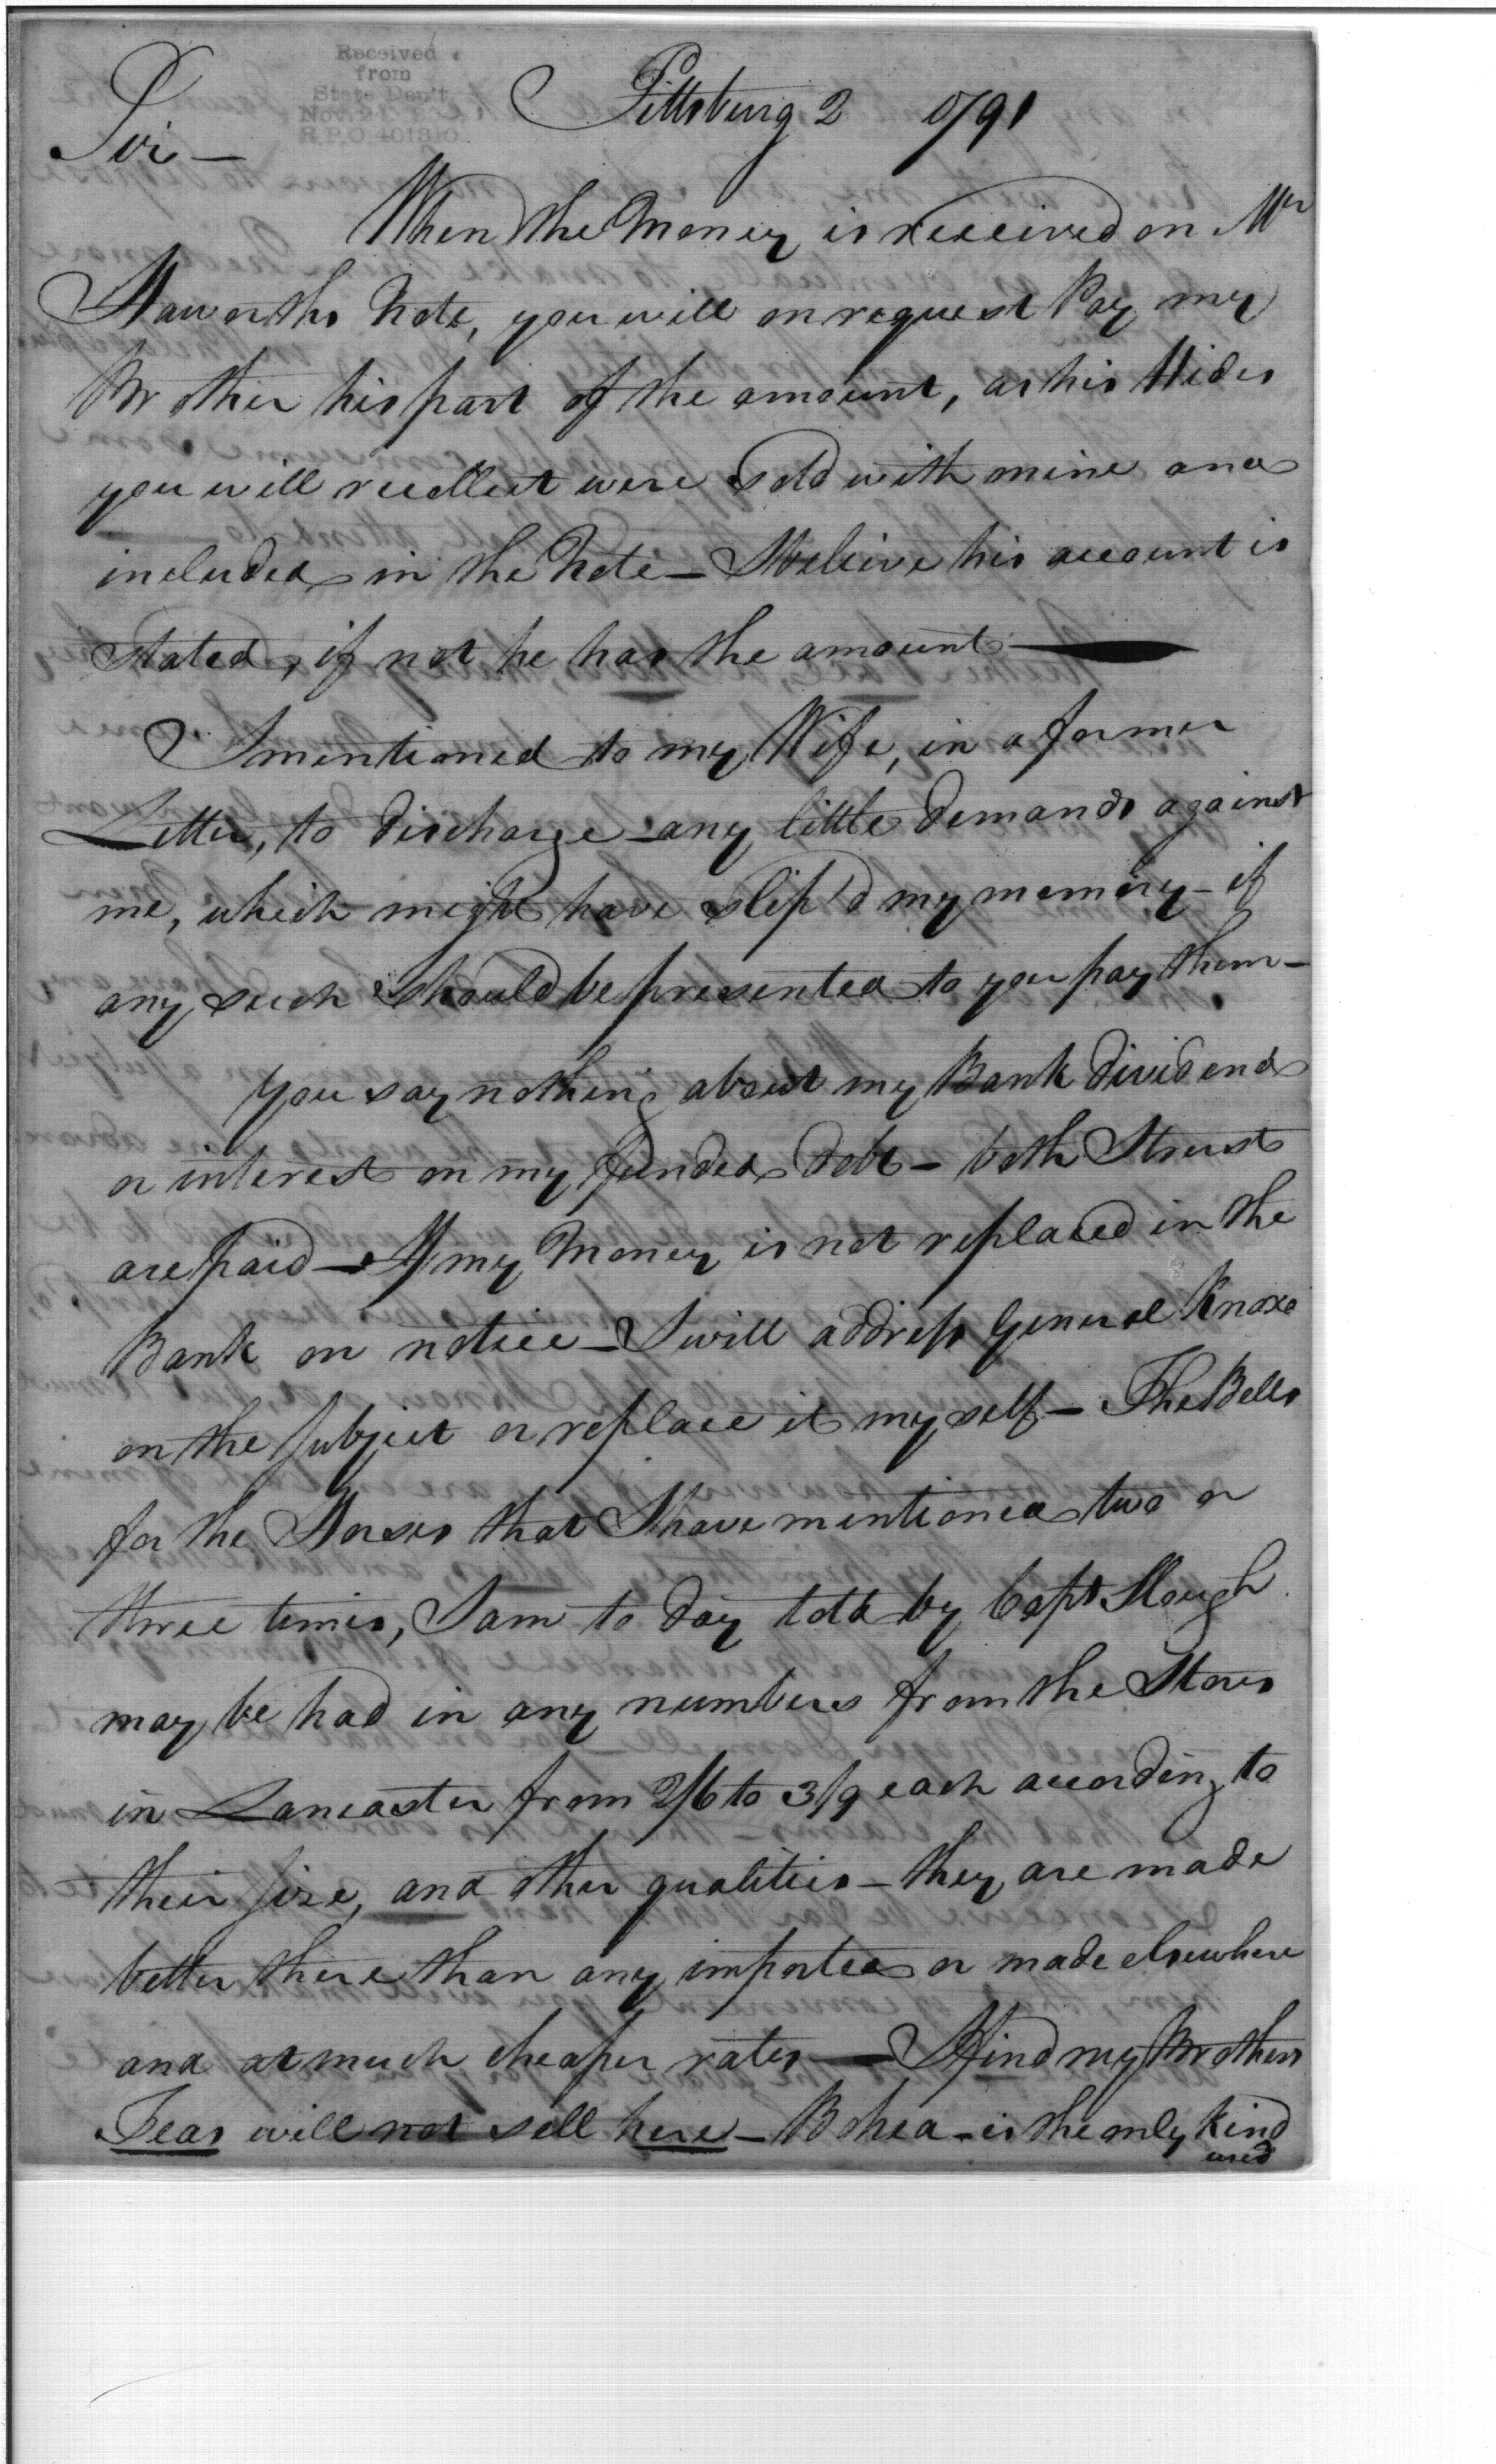 Received
from
State Dep't
Nov. 2
R.P.O. 401310
Pittsburg 2 1791
Sir —
When the Money is received on Mr
Haworths Note, you will on request Pay my
Brother his part of the amount, as his Hides
you will recollect were sold with mine and
included in the Note – I beleive his account is
stated, if not he has the amount —
I mentioned to my Wife, in a former
Letter, to discharge any little demands against
me, which might have slip'd my memory – if
any such should be presented to you pay them –
you say nothing about my Bank dividend
or interest on my funded debt – both I trust
are paid – If my Money is not replaced in the
Bank on notice – I will address General Knox
on the subject or replace it myself – The Bells
for the Horses that I have mentioned two or
three times, I am to day told by Capt Slough
may be had in any numbers from the Stores
in Lancaster from 2/6 to 3/9 each according to
their size, and other qualities – they are made
better there than any imported or made elsewhere
and at much cheaper rates — I find my Brothers
Teas will not sell here – Bohea – is the only kind
used